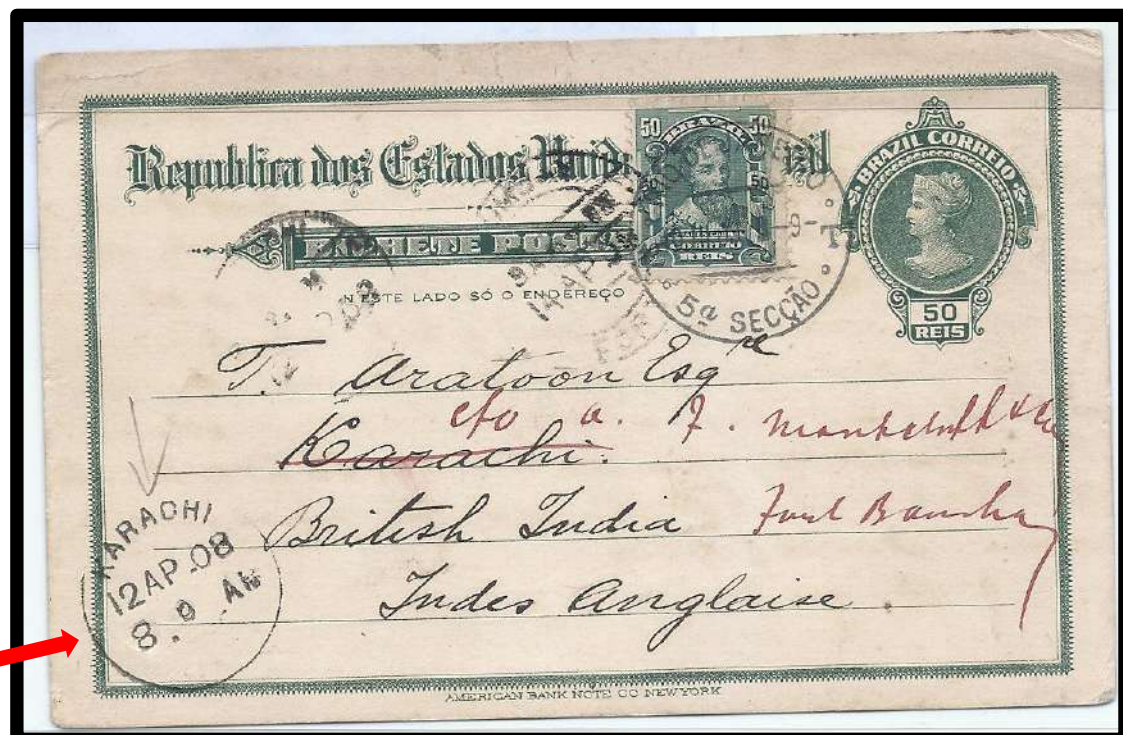 Republica dos Estados Unid il
BRAZIL CORREIO
50 50
BRAZO
50 50
CORREIO
REIS
BILHETE POST
N'ESTE LADO SÓ O ENDEREÇO
5ª SECÇÃO
50
REIS
T. Aratoon Esqre
c/o a. J.
Karachi.
British India Fort Bombay
Indes Anglaise.
KARACHI
12 AP.08
8. 0 AM
AMERICAN BANK NOTE CO NEW YORK